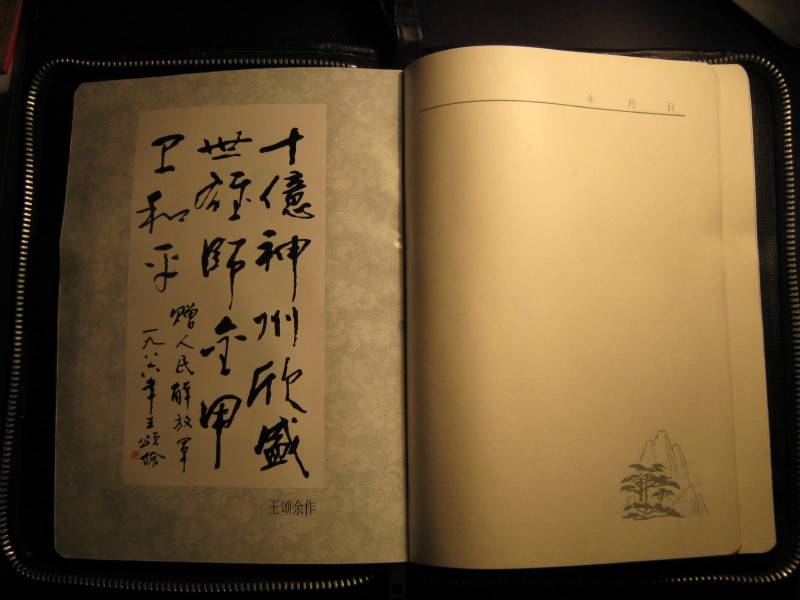 十億神州欣盛
世雄師金甲
卫和平
赠人民解放军
一九八六年王颂馀
王颂余作
年 月 日